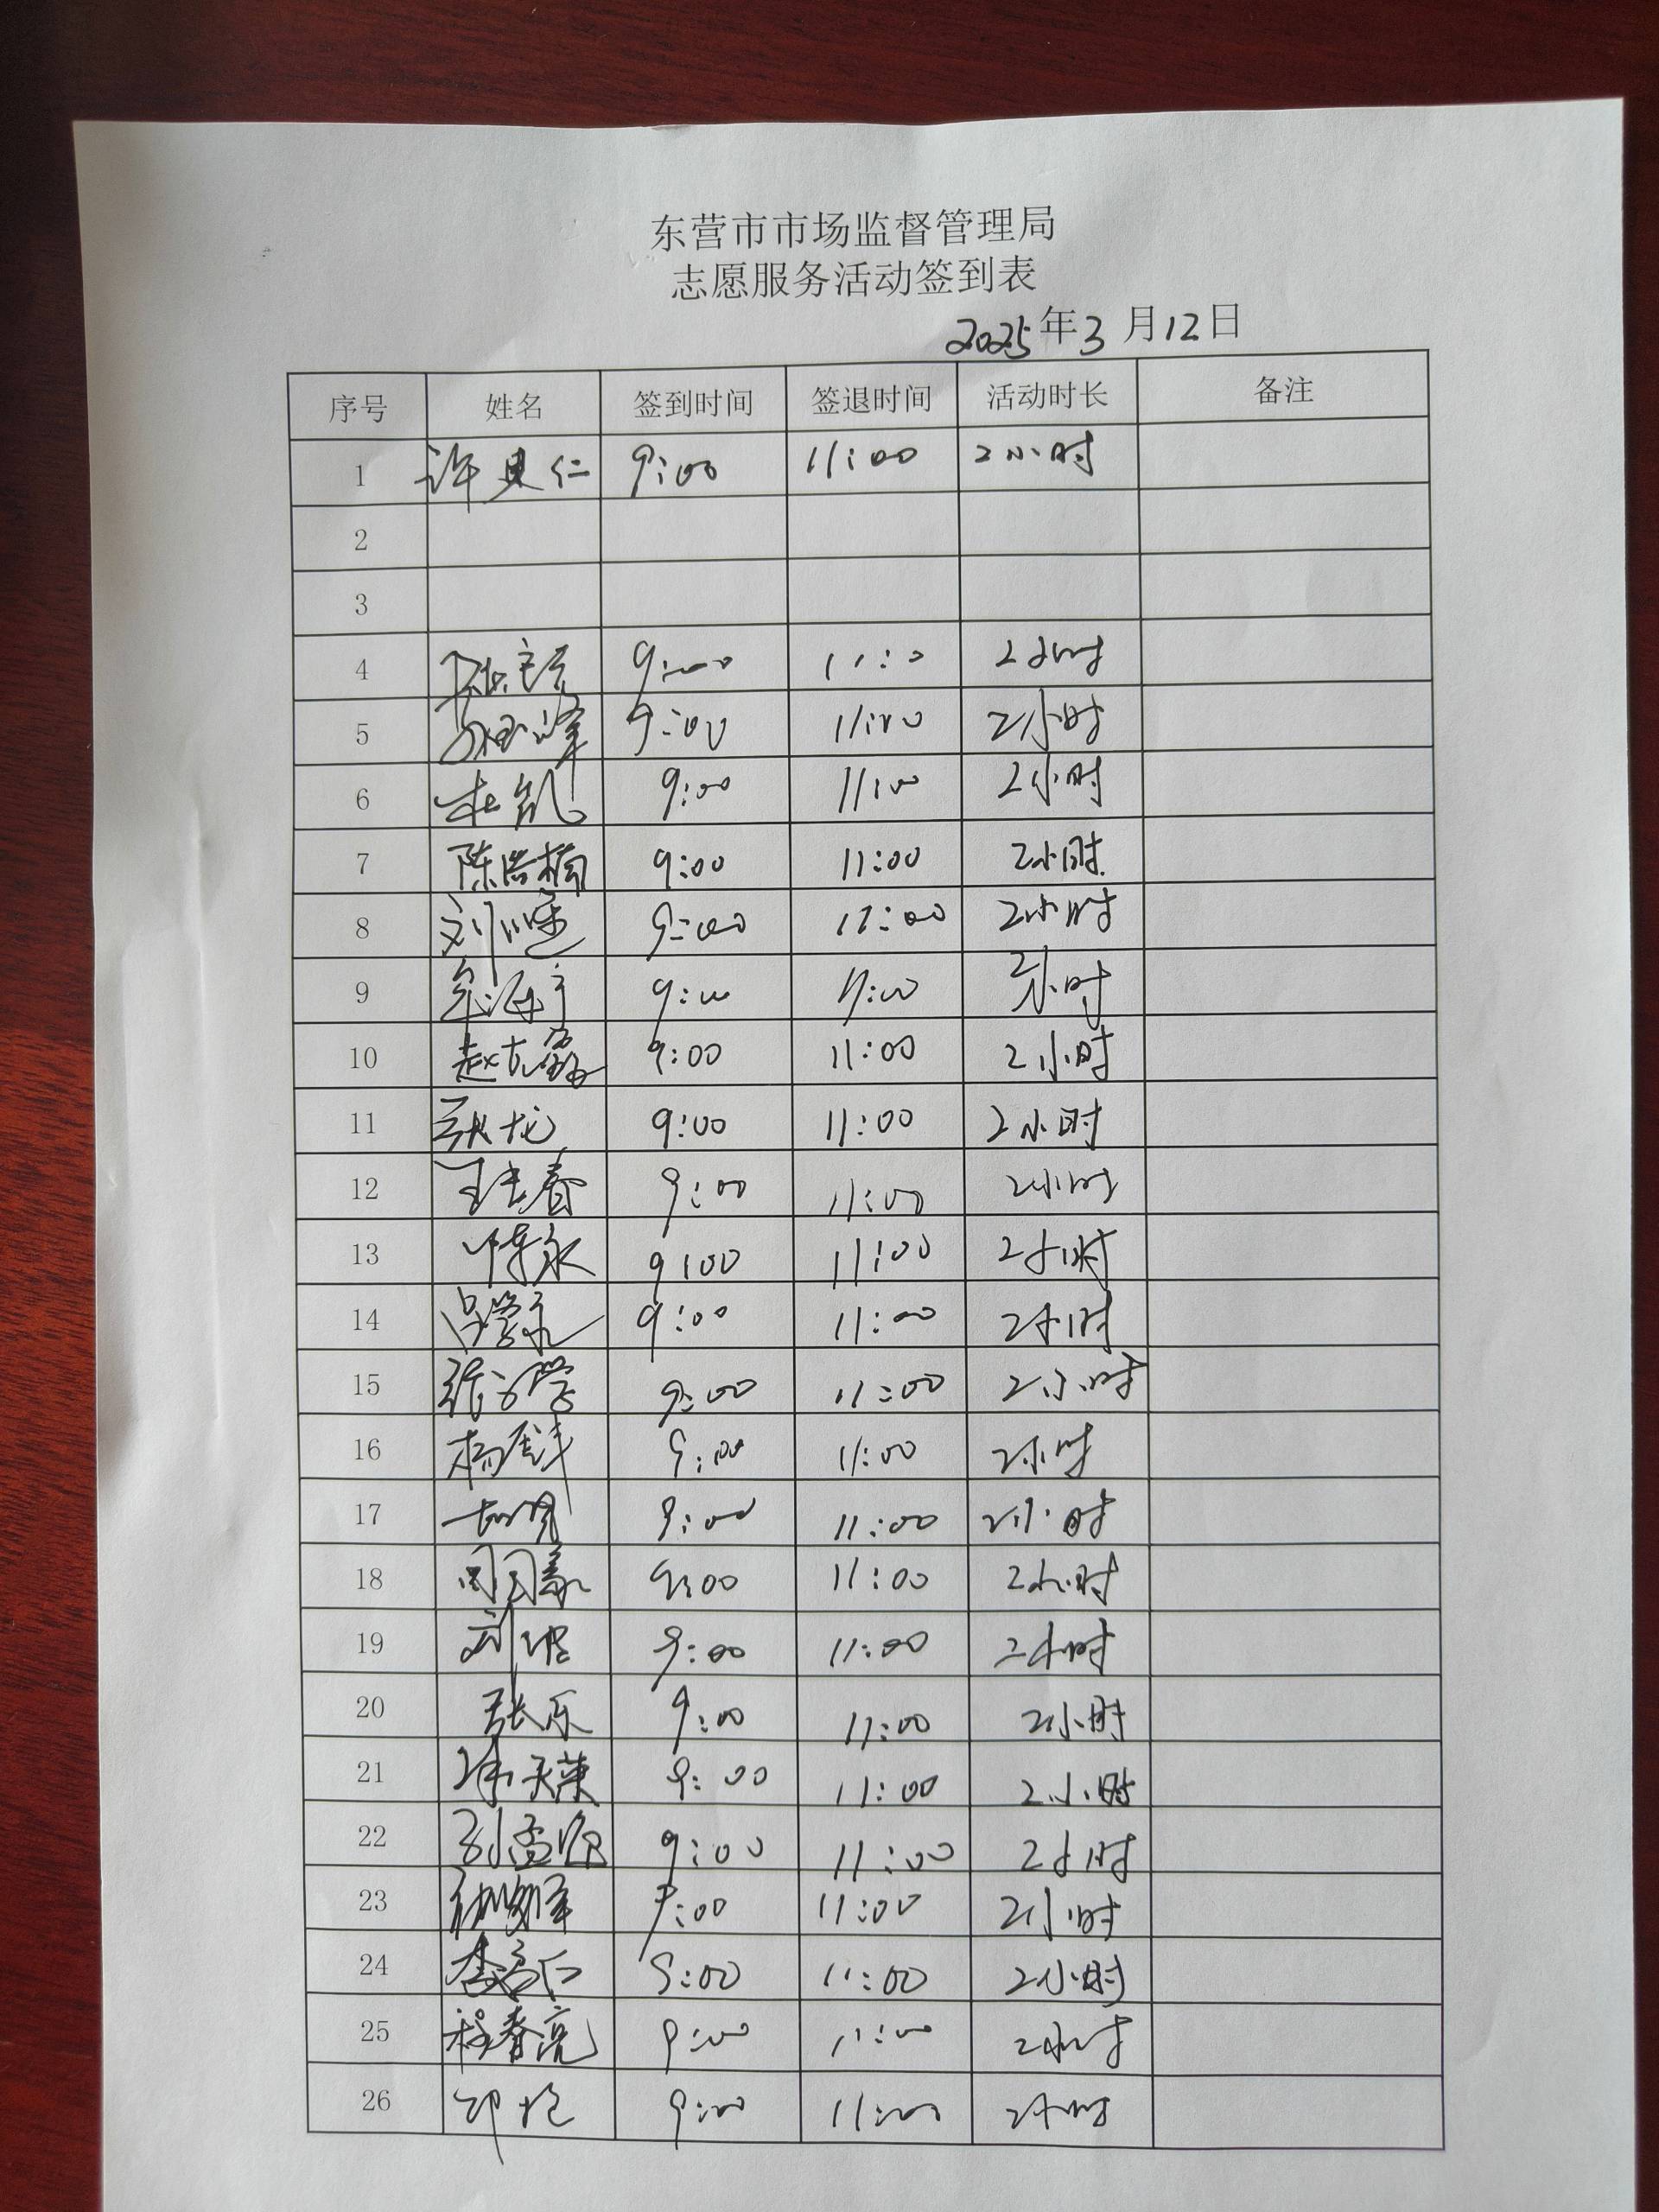 东营市市场监督管理局
志愿服务活动签到表
2025年3月12日
序号 姓名 签到时间 签退时间 活动时长 备注
1 许典仁 9:00 11:00 2小时
2
3
4 9:00 11:00 2小时
5 9:00 11:00 2小时
6 杜凯 9:00 11:00 2小时
7 陈浩楠 9:00 11:00 2小时
8 9:00 11:00 2小时
9 牟海宁 9:00 11:00 2小时
10 9:00 11:00 2小时
11 耿龙 9:00 11:00 2小时
12 9:00 11:00 2小时
13 陈永 9:00 11:00 2小时
14 吕学永 9:00 11:00 2小时
15 9:00 11:00 2小时
16 9:00 11:00 2小时
17 9:00 11:00 2小时
18 9:00 11:00 2小时
19 9:00 11:00 2小时
20 张乐 9:00 11:00 2小时
21 9:00 11:00 2小时
22 9:00 11:00 2小时
23 9:00 11:00 2小时
24 9:00 11:00 2小时
25 程春亮 9:00 11:00 2小时
26 9:00 11:00 2小时